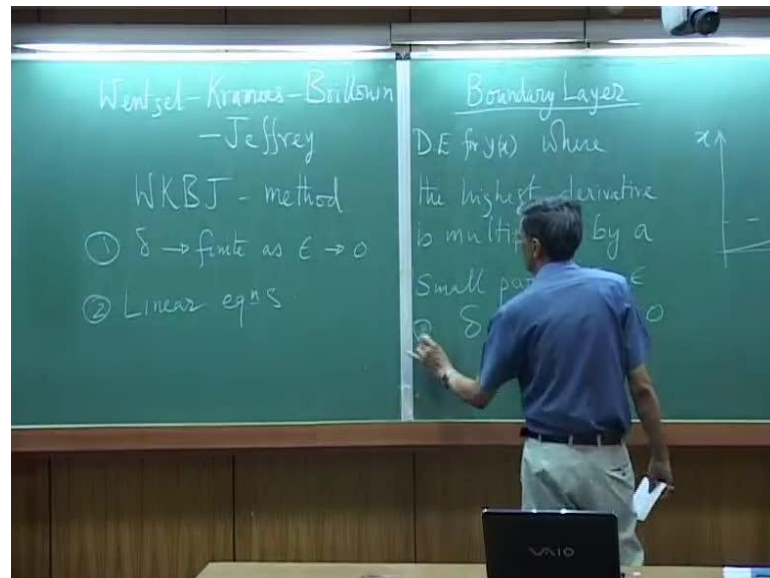 Wentzel-Kramers-Brillouin
-Jeffrey
WKBJ - method
① δ → finite as ϵ → 0
② Linear eqⁿs
Boundary Layer
D.E for y(x) where
the highest derivative
by a
Small ϵ
① δ 0
x
VAIO